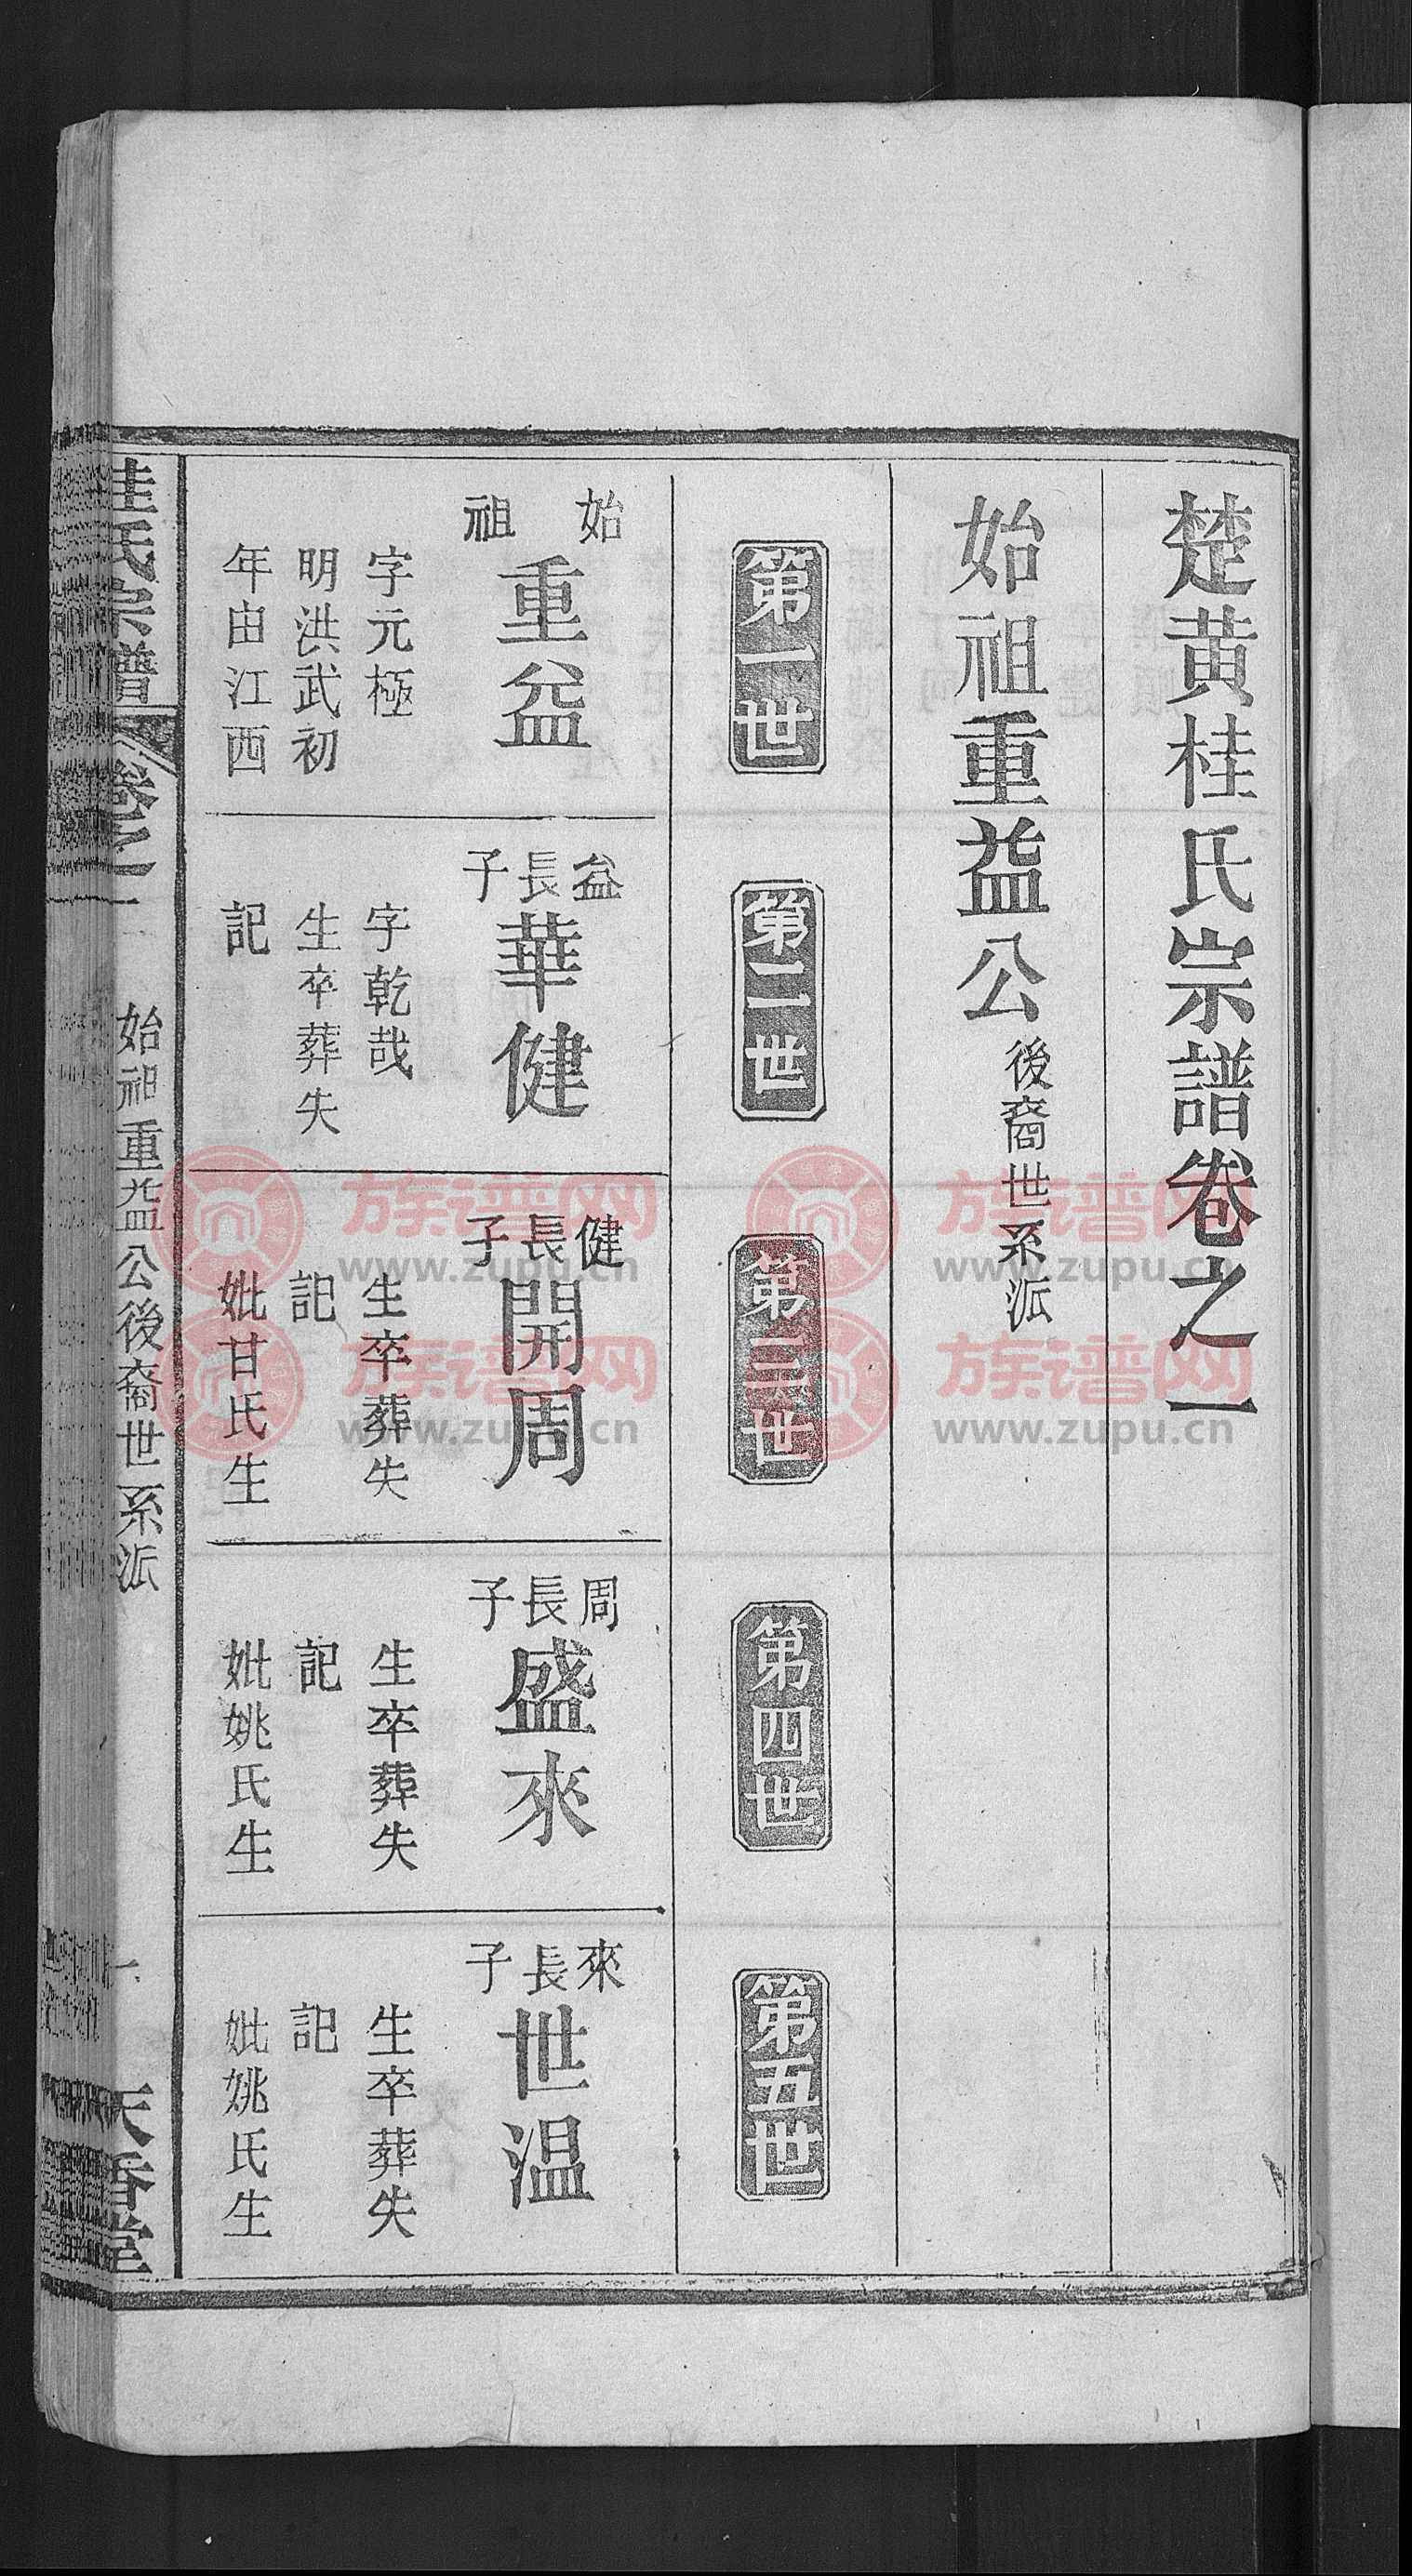 楚黄桂氏宗譜卷之一
始祖重益公後裔世系派
第一世
第二世
第三世
第四世
第五世
始祖
重益
字元極
明洪武初
年由江西
益長子
華健
字乾哉
生卒葬失
記
健長子
開周
生卒葬失
記
妣甘氏生
周長子
盛來
生卒葬失
記
妣姚氏生
來長子
世温
生卒葬失
記
妣姚氏生
桂氏宗譜
卷之一
始祖重益公後裔世系派
一
天香堂
族谱网
www.zupu.cn
族谱网
www.zupu.cn
族谱网
www.zupu.cn
族谱网
www.zupu.cn